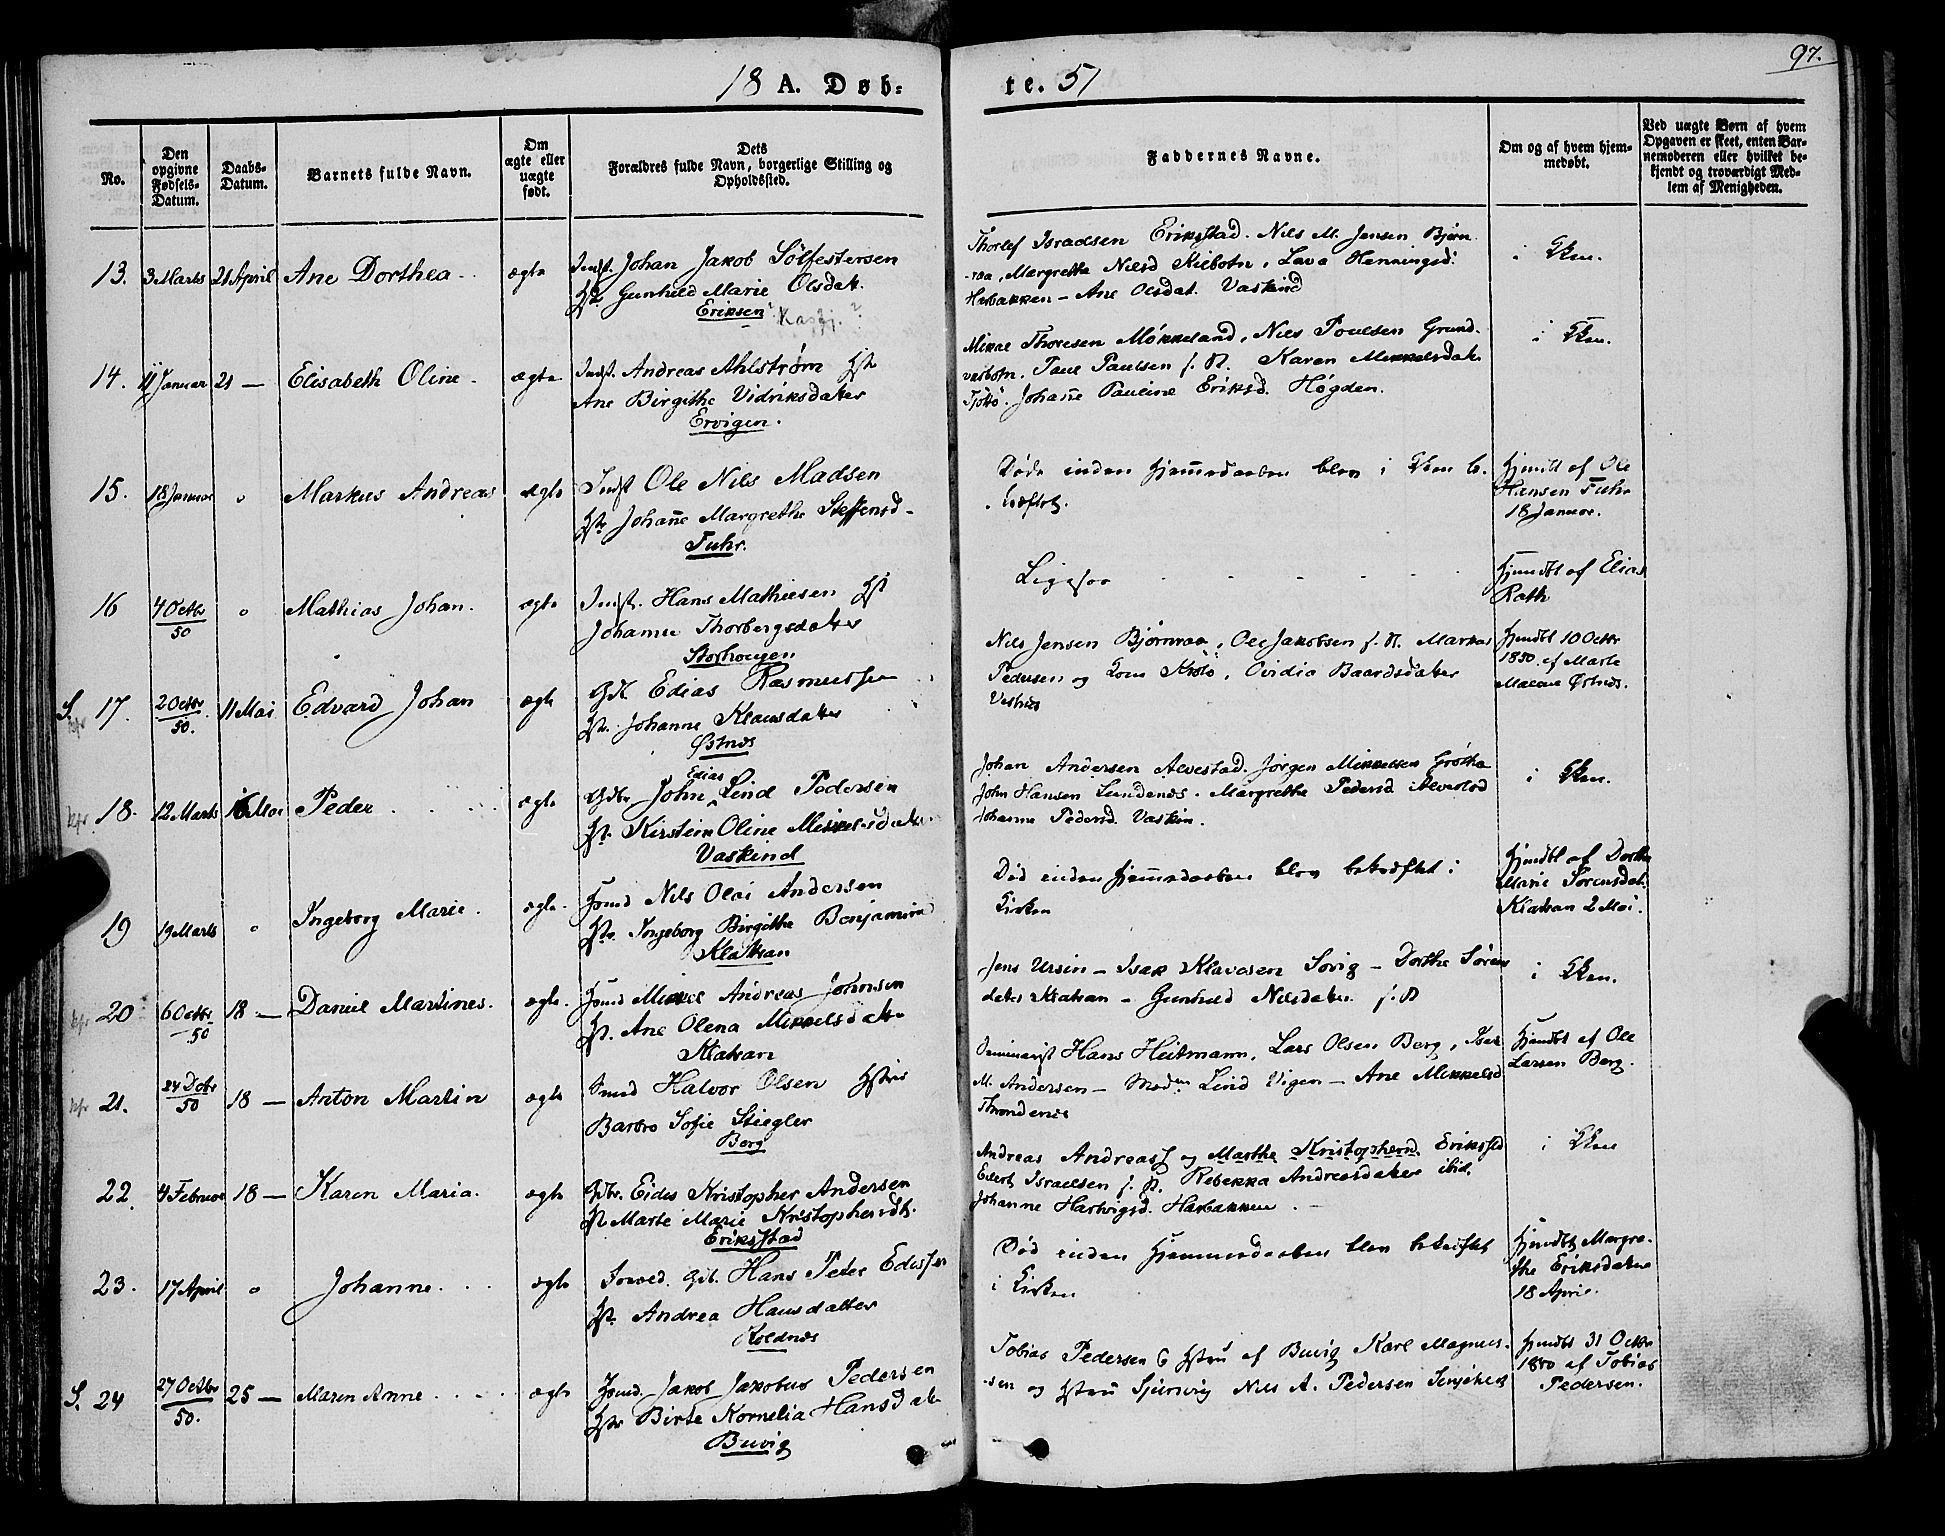 97.
18 A. Døb-
te. 51
No.
Den opgivne Fødsels-Datum.
Daabs-Datum.
Barnets fulde Navn.
Om ægte eller uægte født.
Dets Forældres fulde Navn, borgerlige Stilling og Opholdssted.
Faddernes Navne.
Om og af hvem hjemmedøbt.
Ved uægte Børn af hvem
Opgaven er skeet, enten Bar-
nemoderen eller hvilket be-
kjendt og troværdigt Med-
lem af Menigheden.
13. 3 Marts 21 April Ane Dorthea ægte Indst. Johan Jakob Sølfestersen
Gunhild Marie Olsdat.
Eriksen
Thorlef Israelsen Erikstad. Nils M. Jensen Bjørn-
-raa, Margrethe Nilsd Kilbotn, Lava Henningsd.
Harbakken - Ane Olsdat. Vaskind
i Kken.
14. 11 Januar 21 — Elisabeth Oline ægte Indst. Andreas Ahlstrøm
Ane Birgithe Vidriksdatter
Ervigen.
Mikal Thoresen Møkkeland, Nils Poulsen Grund-
vasbotn. Paul Paulsen f. N. Karen Mikkelsdat
Tjøttø. Johañe Pauline Eriksd. Høgden.
i Kken.
15. 18 Januar Markus Andreas ægte Indst Ole Nils Madsen
Johañe Margrethe Steffensd
Fuhr.
Døde inden Hjemmedaaben blev i Kken b.
kræftet.
Hjmdbt af Ole
Hansen Fuhr
18 Januar.
16 4 Octbr 50 Mathias Johan. ægte Indst. Hans Mathisen
Johanne Thorbergsdatter
Storhougen
Ligesaa
Hjmdbt af Elias
Rath
S. 17. 2 Octbr 50. 11 Mai Edvard Johan ægte Gdb. Edias Rasmussen
Johanne Klausdatter
Østnes
Nils Jensen Bjørnraa, Ole Jakobsen f. N. Markus
Pedersen og Kone Krøtø, Ovidia Baardsdatter
Hjmdbt 10 Octbr
1850 af Marte
Malene Østnes.
18. 12 Marts Mai Peder ægte Gdbr John Edias Lind Pedersen
Kirstein Oline Mikkelsdatter
Vaskind
Johan Andersen Alvestad. Jørgen Mikkelsen Grøtha
John Hansen Lundenes. Margrethe Pedersd Alvestad
Johanne Pedersd. Vaskin.
i Kken.
19 19 Marts Ingeborg Marie. ægte. Hsmd Nils Olai Andersen
Ingeborg Birgitha Benjamind
Klatran
Død inden Hjemmedaaben blev bekræftet i
Kirken
Hjmdbt af Dorthe
Marie Sørensdat.
Klatran 2 Mai.
20 6 Octbr 50 18 — Daniel Martines. ægte. Hsmd Mikkel Andreas Johnsen
Ane Olena Mikkelsdatter
Klatran
Jens Ursin — Isak Klavesen Sørvig — Dorthe Sørens
datter Klatran — Gunhild Nilsdatter f. N
i Kken.
21. 24 Dcbr 50 18 — Anton Martin ægte Smed Halvor Olsen Hstru
Barbro Sofie Stiegler
Berg
Seminarist Hans Heitmann, Lars Olsen Berg, Isak
M. Andersen — Madm Lind Vigen — Ane Mikkelsd
Throndenes
Hjmdbt af Ole
Larsen Berg.
22. 4 Februar 18 — Karen Maria. ægte Gdbr. Eides Kristopher Andersen
Marte Marie Kristophersdt.
Eriksstad
Andreas Andreass og Marthe Kristophersd Eriksstd
Edert Israelsen f. N. Rebekka Andreasdatter ibid.
Johanne Hartvigsd. Harbakken
i Kken
23. 17 April Johanne. ægte Gdb. Hans Peter Edissen
Andrea Hansdatter
Koldnes
Død inden Hjemmedaaben blev bekræftet
i Kirken
Hjmdbt Margre-
the Eriksdatter
18 April.
S. 24 27 Octbr 50. 25 — Maren Anne ægte Hsmd. Jakob Jakobus Pedersen
Birte Kornelia Hansdat
Buvig
Tobias Pedersen & Hstru af Buvig Karl Magnus-
-sen og Hstru Nils A. Pedersen
Hjmdbt 31 Octbr
1850 af Tobias
Pedersen.